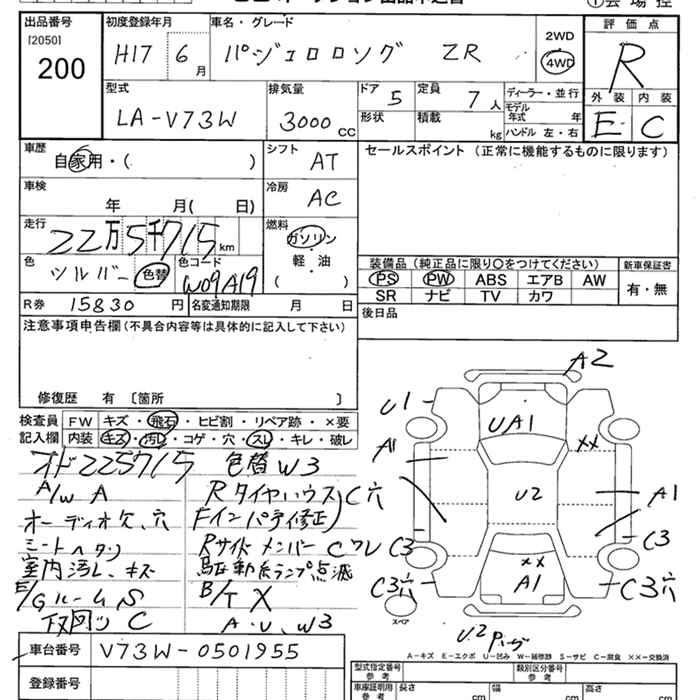 出品番号 [2050] 200
初度登録年月 H17 6月
車名・グレード パジェロロング ZR
2WD 4WD
評価点 R
外装 E 内装 C
型式 LA-V73W
排気量 3000 CC
ドア 5
形状
定員 7人
積載 kg
ディーラー・並行
モデル年式 年
ハンドル 左・右
車歴 自家用・( )
シフト AT
車検 年 月( 日)
冷房 AC
走行 22万5千715km
燃料 ガソリン 軽・油 ( )
色 シルバー 色替
色コード W09A19
R券 15830 円
名変通知期限 月 日
セールスポイント (正常に機能するものに限ります)
装備品 (純正品に限り○をつけてください)
新車保証書 有・無
PS PW ABS エアB AW
SR ナビ TV カワ
後日品
注意事項申告欄 (不具合内容等は具体的に記入して下さい)
修復歴 有 〔箇所 〕
検査員記入欄
FW キズ・飛石・ヒビ割・リペア跡・×要
内装 キズ・汚レ・コゲ・穴・スレ・キレ・破レ
オド225715 色替W3
A/W A
RタイヤハウスC穴
オーディオ欠、穴
Fインパティ修正)
シートヘタリ
RサイドメンバーCワレ
室内汚レ、キズ
駐車動灰ランプ点滅
E/Gルーム S
B/T X
下回り C
A・U、W3
A2
U1
UA1
A1
××
U2
A1
C3
C3
C3穴
××
A1
C3穴
スペア
U2 Pゲージ
A-キズ E-エクボ U-凹み W-補修跡 S-サビ C-腐食 ××-交換済
車台番号 V73W-0501955
登録番号
型式指定番号 参考
類別区分番号 参考
車庫証明用 参考
長さ cm 幅 cm 高さ cm